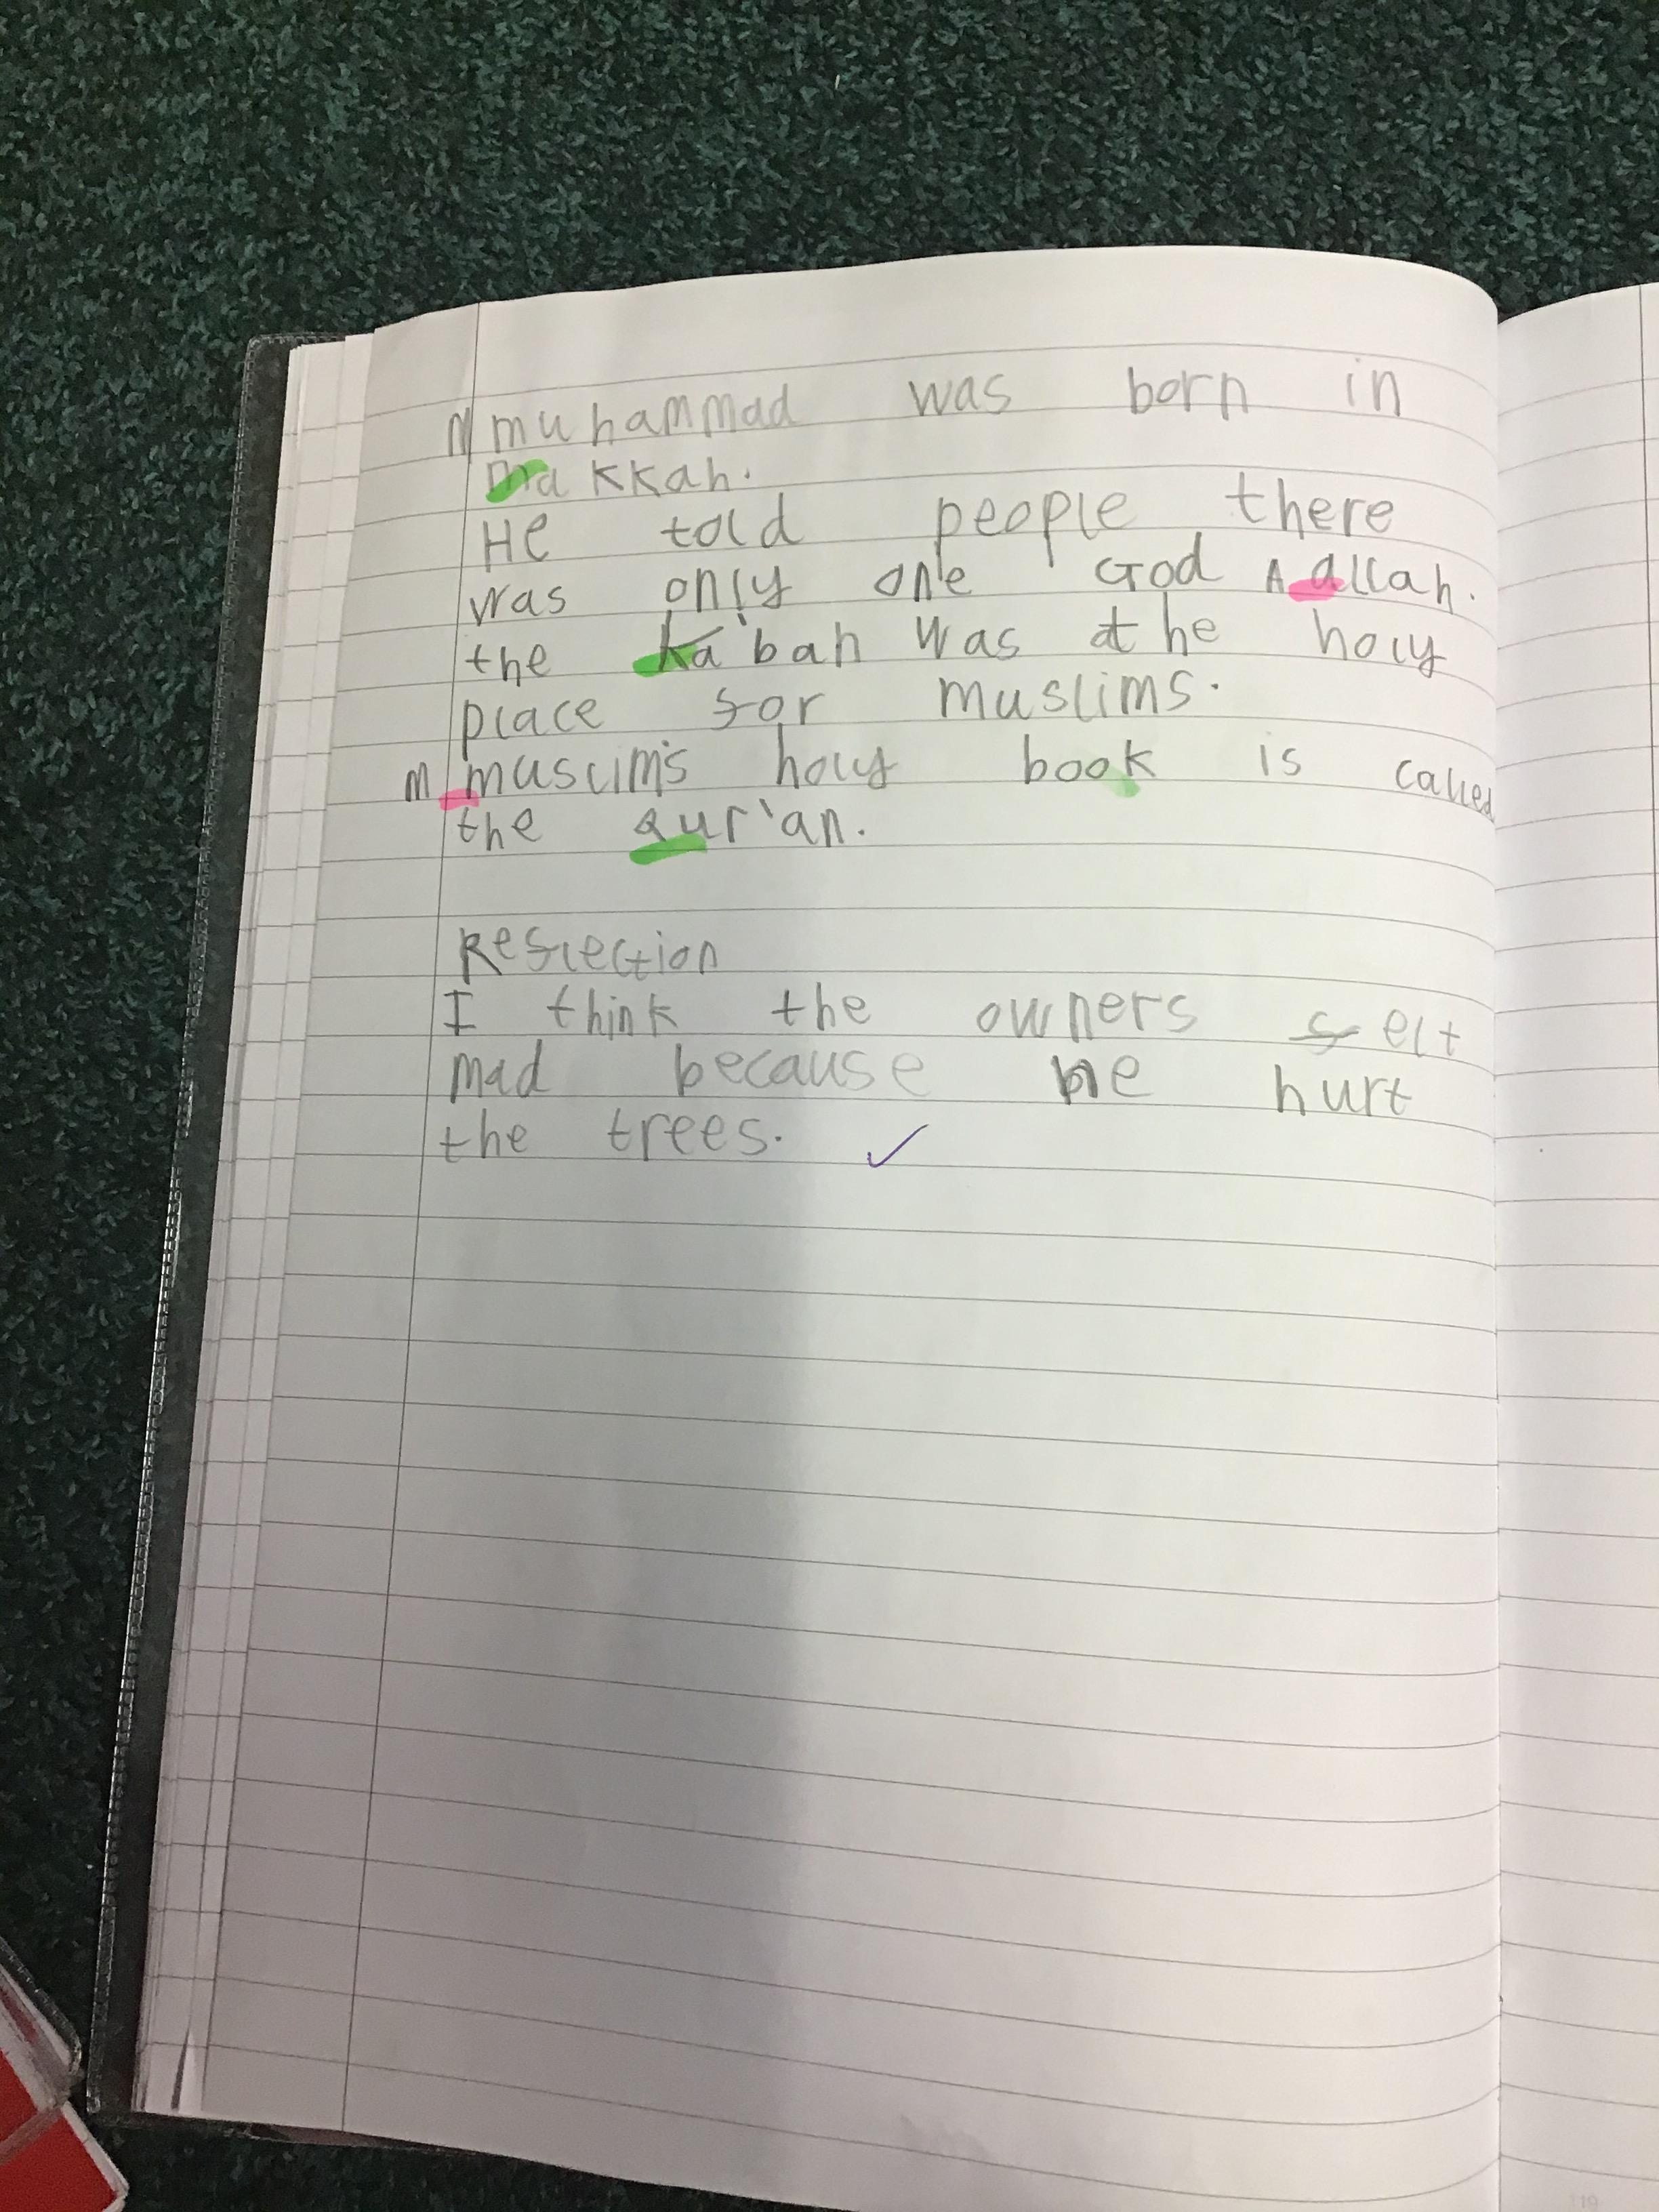 M muhammad was born in
makkah.
He told people there
was only one God A allah.
the Ka'bah was the holy
place for muslims.
M muslim's holy book is called
the Qur'an.
Reflection
I think the owners felt
mad because he hurt
the trees. ✓